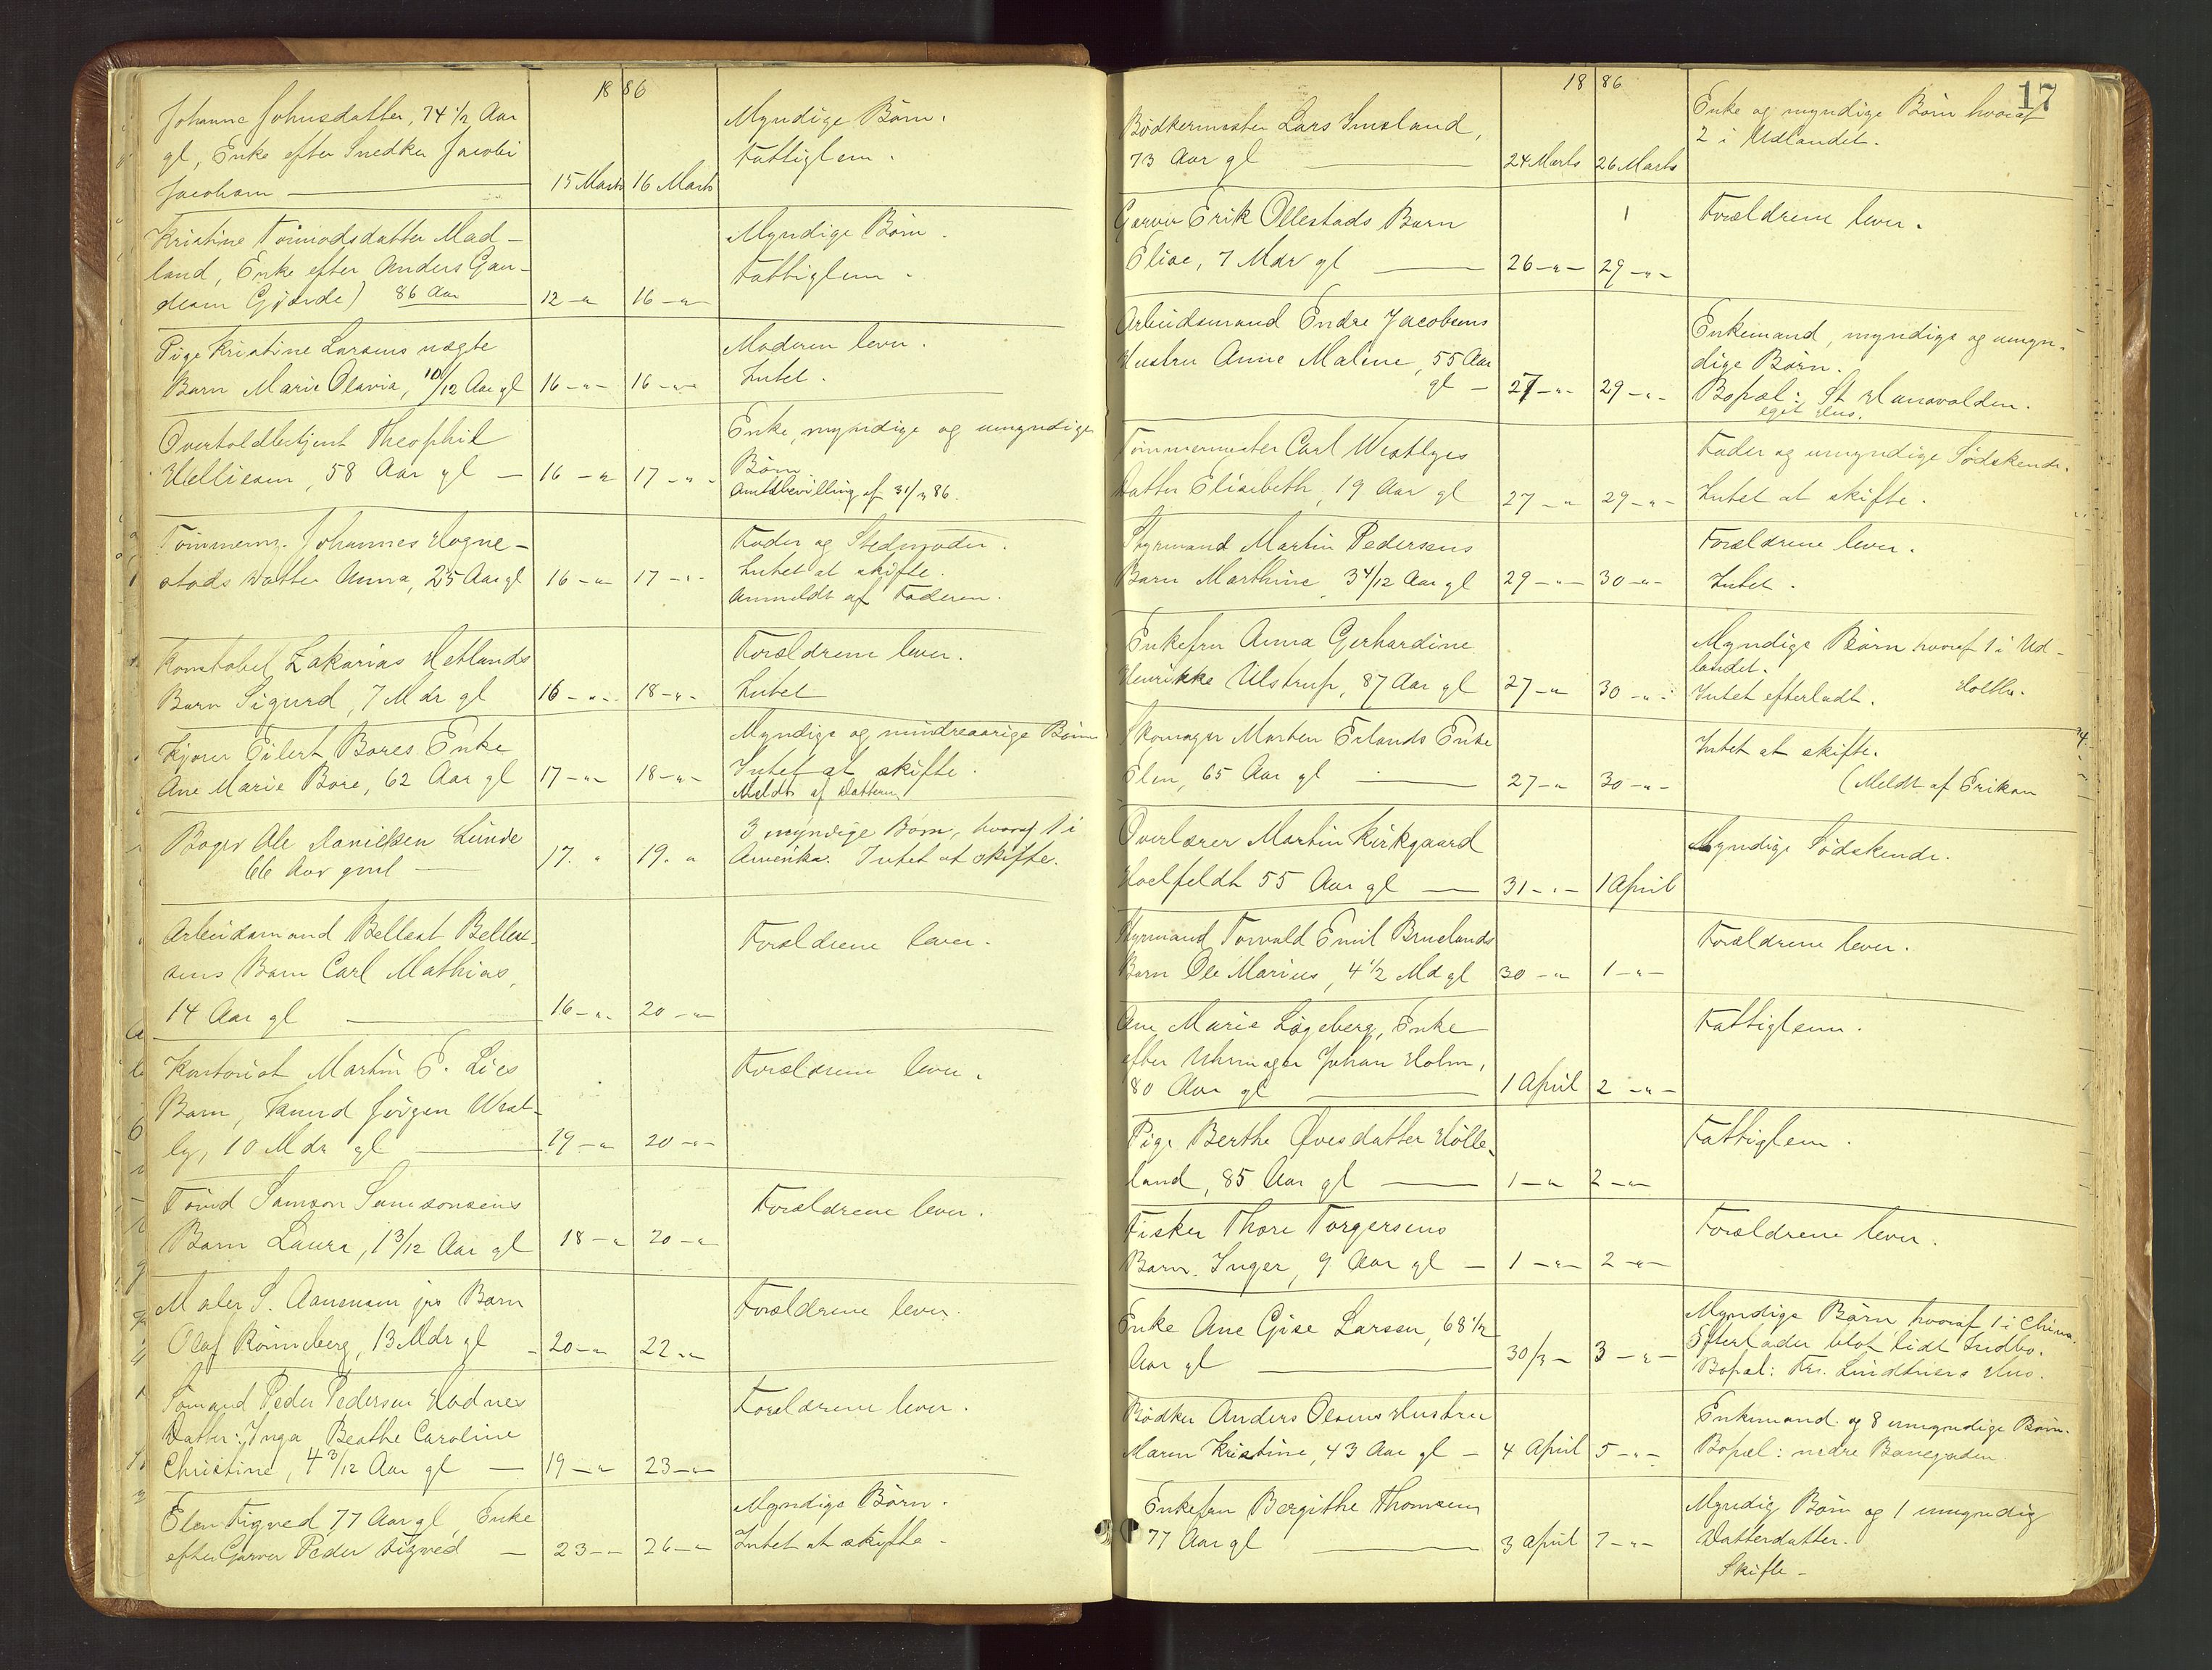 18 86
Johanne Johnsdatter, 74 1/2 Aar
gl, Enke efter Snedker Jacobi
Jacobsen — 15 Marts 16 Marts
Myndige Børn.
Fattiglem.
Kristine Tormodsdatter Mad-
land, Enke efter Anders Gau-
desen Gjerde) 86 Aar 12 -"- 16 -"-
Myndige Børn.
Fattiglem.
Pige Kristine Larsens uægte
Barn Marie Olavia, 10/12 Aar gl 16 -"- 16 -"-
Moderen lever.
Intet.
Overtoldbetjent Theophil
Helliesen, 58 Aar gl — 16 -"- 17 -"-
Enke, myndige og umyndige
Børn.
Amtsbevilling af 31/3 86.
Tømmerm. Johannes Hogne-
stads Datter Anna, 25 Aar gl 16 -"- 17 -"-
Fader og Stedmoder.
Intet at skifte.
Anmeldt af Faderen.
Konstabel Zakarias Hetlands
Barn Sigurd, 7 Mdr gl 16 -"- 18 -"-
Forældrene lever.
Intet
Kjører Eilert Bores Enke
Ane Marie Bore, 62 Aar gl 17 -"- 18 -"-
Myndige og mindreaarige Børn
Intet at skifte.
Meldt af Datteren
Bager Ole Danielsen Lunde
66 Aar gml — 17. " 19. "
3 myndige Børn, hvoraf 1 i
Amerika. Intet at skifte.
Arbeidsmand Bellest Bellest-
sens Barn Carl Mathias,
14 Aar gl — 16 -"- 20 -"-
Forældrene lever.
Kontorist Martin E. Lies
Barn, Knud Jørgen West-
ly, 10 Mdr gl — 19 -"- 20 -"-
Forældrene lever.
Samson Samsonsens
Barn Laura, 1 3/12 Aar gl 18 -"- 20 -"-
Forældrene lever.
Maler S. Aanensen jrs Barn
Olaf Rønneberg, 13 Mdr gl - 20 -"- 22 -"-
Forældrene lever.
Sømand Peder Pedersen Hodnes
Datter: Inga Beathe Caroline
Christine, 4 3/12 Aar gl — 19 -"- 23 -"-
Forældrene lever.
Elen Tigved 77 Aar gl, Enke
efter Garver Peder Tigved — 23 -- 26 -"-
Myndige Børn.
Intet at skifte.
17
18 86
Bødkermester Lars Imsland,
73 Aar gl — 24 Marts 26 Marts
Enke og myndige Børn hvoraf
2 i Udlandet.
Garver Erik Ollestads Barn
Elise, 7 Mdr gl — 26 -"- 29 -"-
Forældrene lever.
Arbeidsmand Endre Jacobsens
Hustru Anne Maline, 55 Aar
gl — 27 -"- 29 -"-
Enkemand, myndige og umyn-
dige Børn.
Bopæl: St Hansvolden.
eget Hus.
Tømmermester Carl Westlyes
Datter Elisebeth, 19 Aar gl 27 -"- 29 -"-
Fader og umyndige Sødskende.
Intet at skifte.
Styrmand Martin Pedersens
Barn Marthine, 3 4/12 Aar gl 29 -"- 30 -"-
Forældrene lever.
Intet.
Enkefru Anna Gerhardine
Henrikke Ulstrup, 87 Aar gl 27 -"- 30 -"-
Myndige Børn hvoraf 1 i Ud-
landet.
Intet efterladt.
Skomager Morten Erlands Enke
Elen, 65 Aar gl — 27 -"- 30 -"-
Intet at skifte.
(Meldt af Eriksen
Overlærer Martin Kirkgaard
Hoelfeldt 55 Aar gl — 31 -"- 1 April
Myndige Sødskende.
Styrmand Torvald Emil Bruelands
Barn Ole Marius, 4 1/2 Md gl 30 -"- 1 -"-
Forældrene lever.
Ane Marie Løgeberg, Enke
efter Uhrmager Johan Holm,
80 Aar gl — 1 April 2 -"-
Fattiglem.
Pige Berthe Øvesdatter Hølle-
land, 85 Aar gl — 1 -"- 2 -"-
Fattiglem.
Fisker Thore Torgersens
Barn Inger, 9 Aar gl — 1 -"- 2 -"-
Forældrene lever.
Enke Ane Gise Larsen, 68 1/2
Aar gl — 30/3 - 3 -"-
Myndige Børn hvoraf 1 i China.
Efterlader blot lidt Indbo.
Bopæl: Fru Lindtners Hus.
Bødker Anders Olsens Hustru
Maren Kristine, 43 Aar gl — 4 April 5 -"-
Enkemand og 8 umyndige Børn.
Bopæl: nedre Banegaden.
Enkefru Bergithe Thomsen
77 Aar gl — 3 April 7 -"-
Myndig Børn og 1 umyndig
Datterdatter.
Skifte -